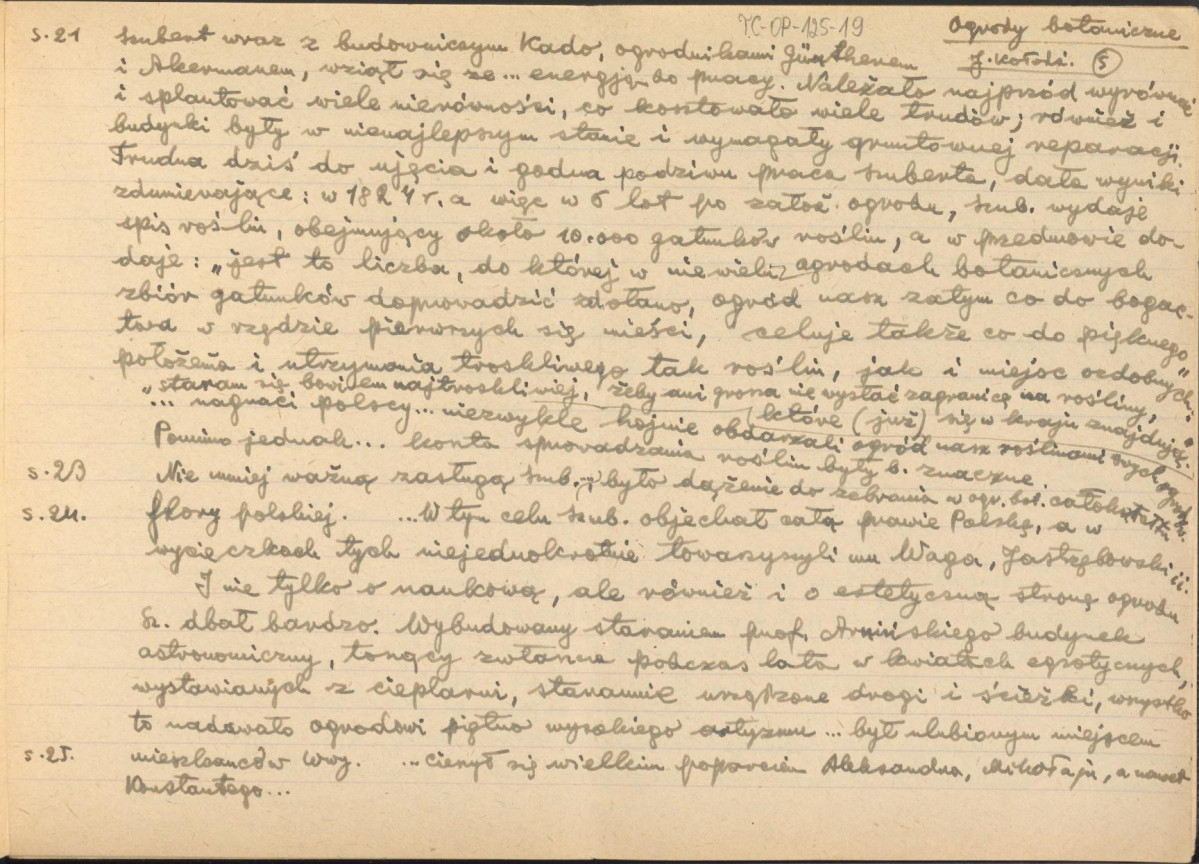 TC-OP-125-19
Ogrody botaniczne
J. Kołodz. (5)
s.21 Szubert wraz z budowniczym Kado, ogrodnikami Güntherem
i Akermanem, wziął się ze... energją do pracy. Należało najprzód wyrównać
i splantować wiele nierówności, co kosztowało wiele trudów; również i
budynki były w nienajlepszym stanie i wymagały gruntownej reparacji.
Trudna dziś do ujęcia i godna podziwu praca Szuberta, dała wyniki
zdumiewające: w 1824 r. a więc w 6 lat po założ. ogrodu, Szub. wydaje
spis roślin, obejmujący około 10.000 gatunków roślin, a w przedmowie do-
daje: „jest to liczba, do której w niewielu ogrodach botanicznych
zbiór gatunków doprowadzić zdołano, ogród nasz zatym co do bogac-
twa w rzędzie pierwszych się mieści, celuje także co do pięknego
położenia i utrzymania troskliwego tak roślin, jak i miejsc ozdobnych."
„staram się bowiem najtroskliwiej, żeby ani grosza nie wysłać zagranicę na rośliny,
które (już) się w kraju znajdują".
... magnaci polscy... niezwykle hojnie obdarzali ogród nasz roślinami swych ogrodów.
Pomimo jednak... konta sprowadzania roślin były b. znaczne.
s.23 Nie mniej ważną zasługą Szub. ... było dążenie do zebrania w ogr. bot. całokształtu
s.24. flory polskiej. ...W tym celu Szub. objechał całą prawie Polskę, a w
wycieczkach tych niejednokrotnie towarzyszyli mu Waga, Jastrzębowski i i.
I nie tylko o naukową, ale również i o estetyczną stronę ogrodu
Sz. dbał bardzo. Wybudowany staraniem prof. Armińskiego budynek
astronomiczny, tonący zwłaszcza podczas lata w kwiatach egzotycznych,
wystawianych z cieplarni, starannie urządzone drogi i ścieżki, wszystko
to nadawało ogrodowi piętno wysokiego artyzmu ... był ulubionym miejscem
s.25. mieszkańców Wwy. ...cieszył się wielkim poparciem Aleksandra, Mikołaja, a nawet
Konstantego...